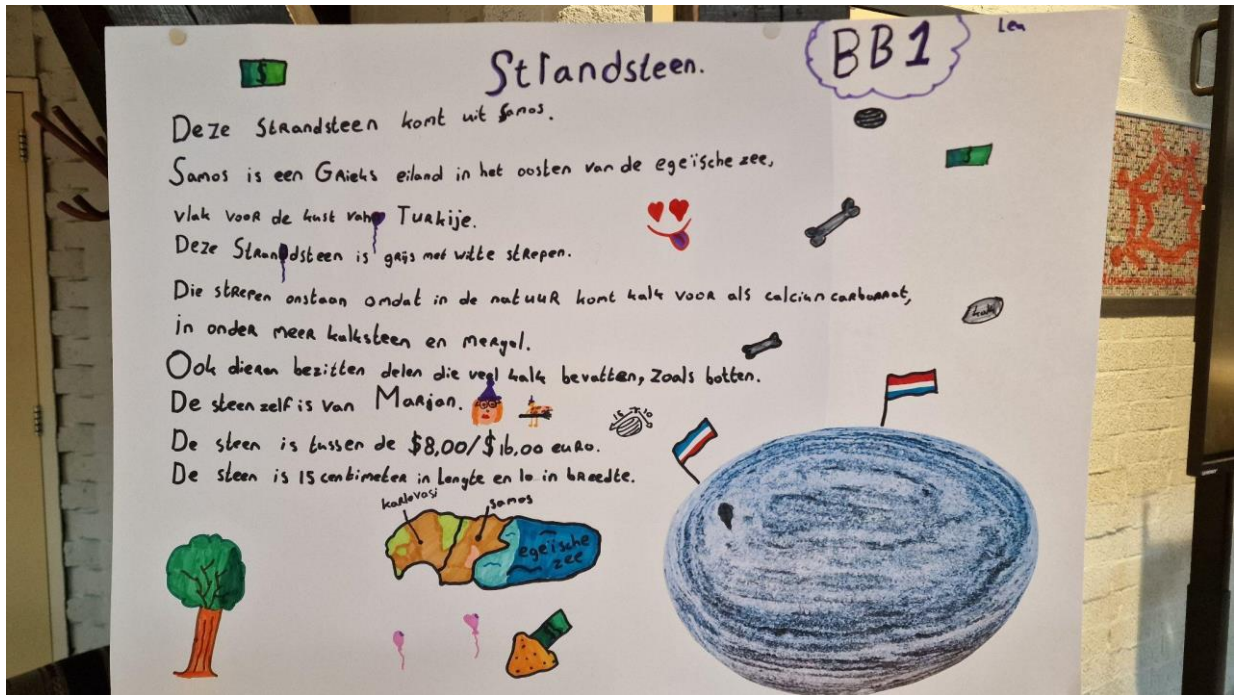 Strandsteen.
BB1
Len
Deze Strandsteen komt uit Samos.
Samos is een Grieks eiland in het oosten van de egeïsche zee,
vlak voor de kust van Turkije.
Deze Strandsteen is grijs met witte strepen.
Die strepen onstaan omdat in de natuur komt kalk voor als calcium carbonnat,
in onder meer kalksteen en mergel.
Ook dieren bezitten delen die veel kalk bevatten, zoals botten.
De steen zelf is van Marjan.
De steen is tussen de $8,00/$16,00 euro.
De steen is 15 centimeter in lengte en 10 in breedte.
kalk
15 10
karlovasi
samos
egeïsche
zee